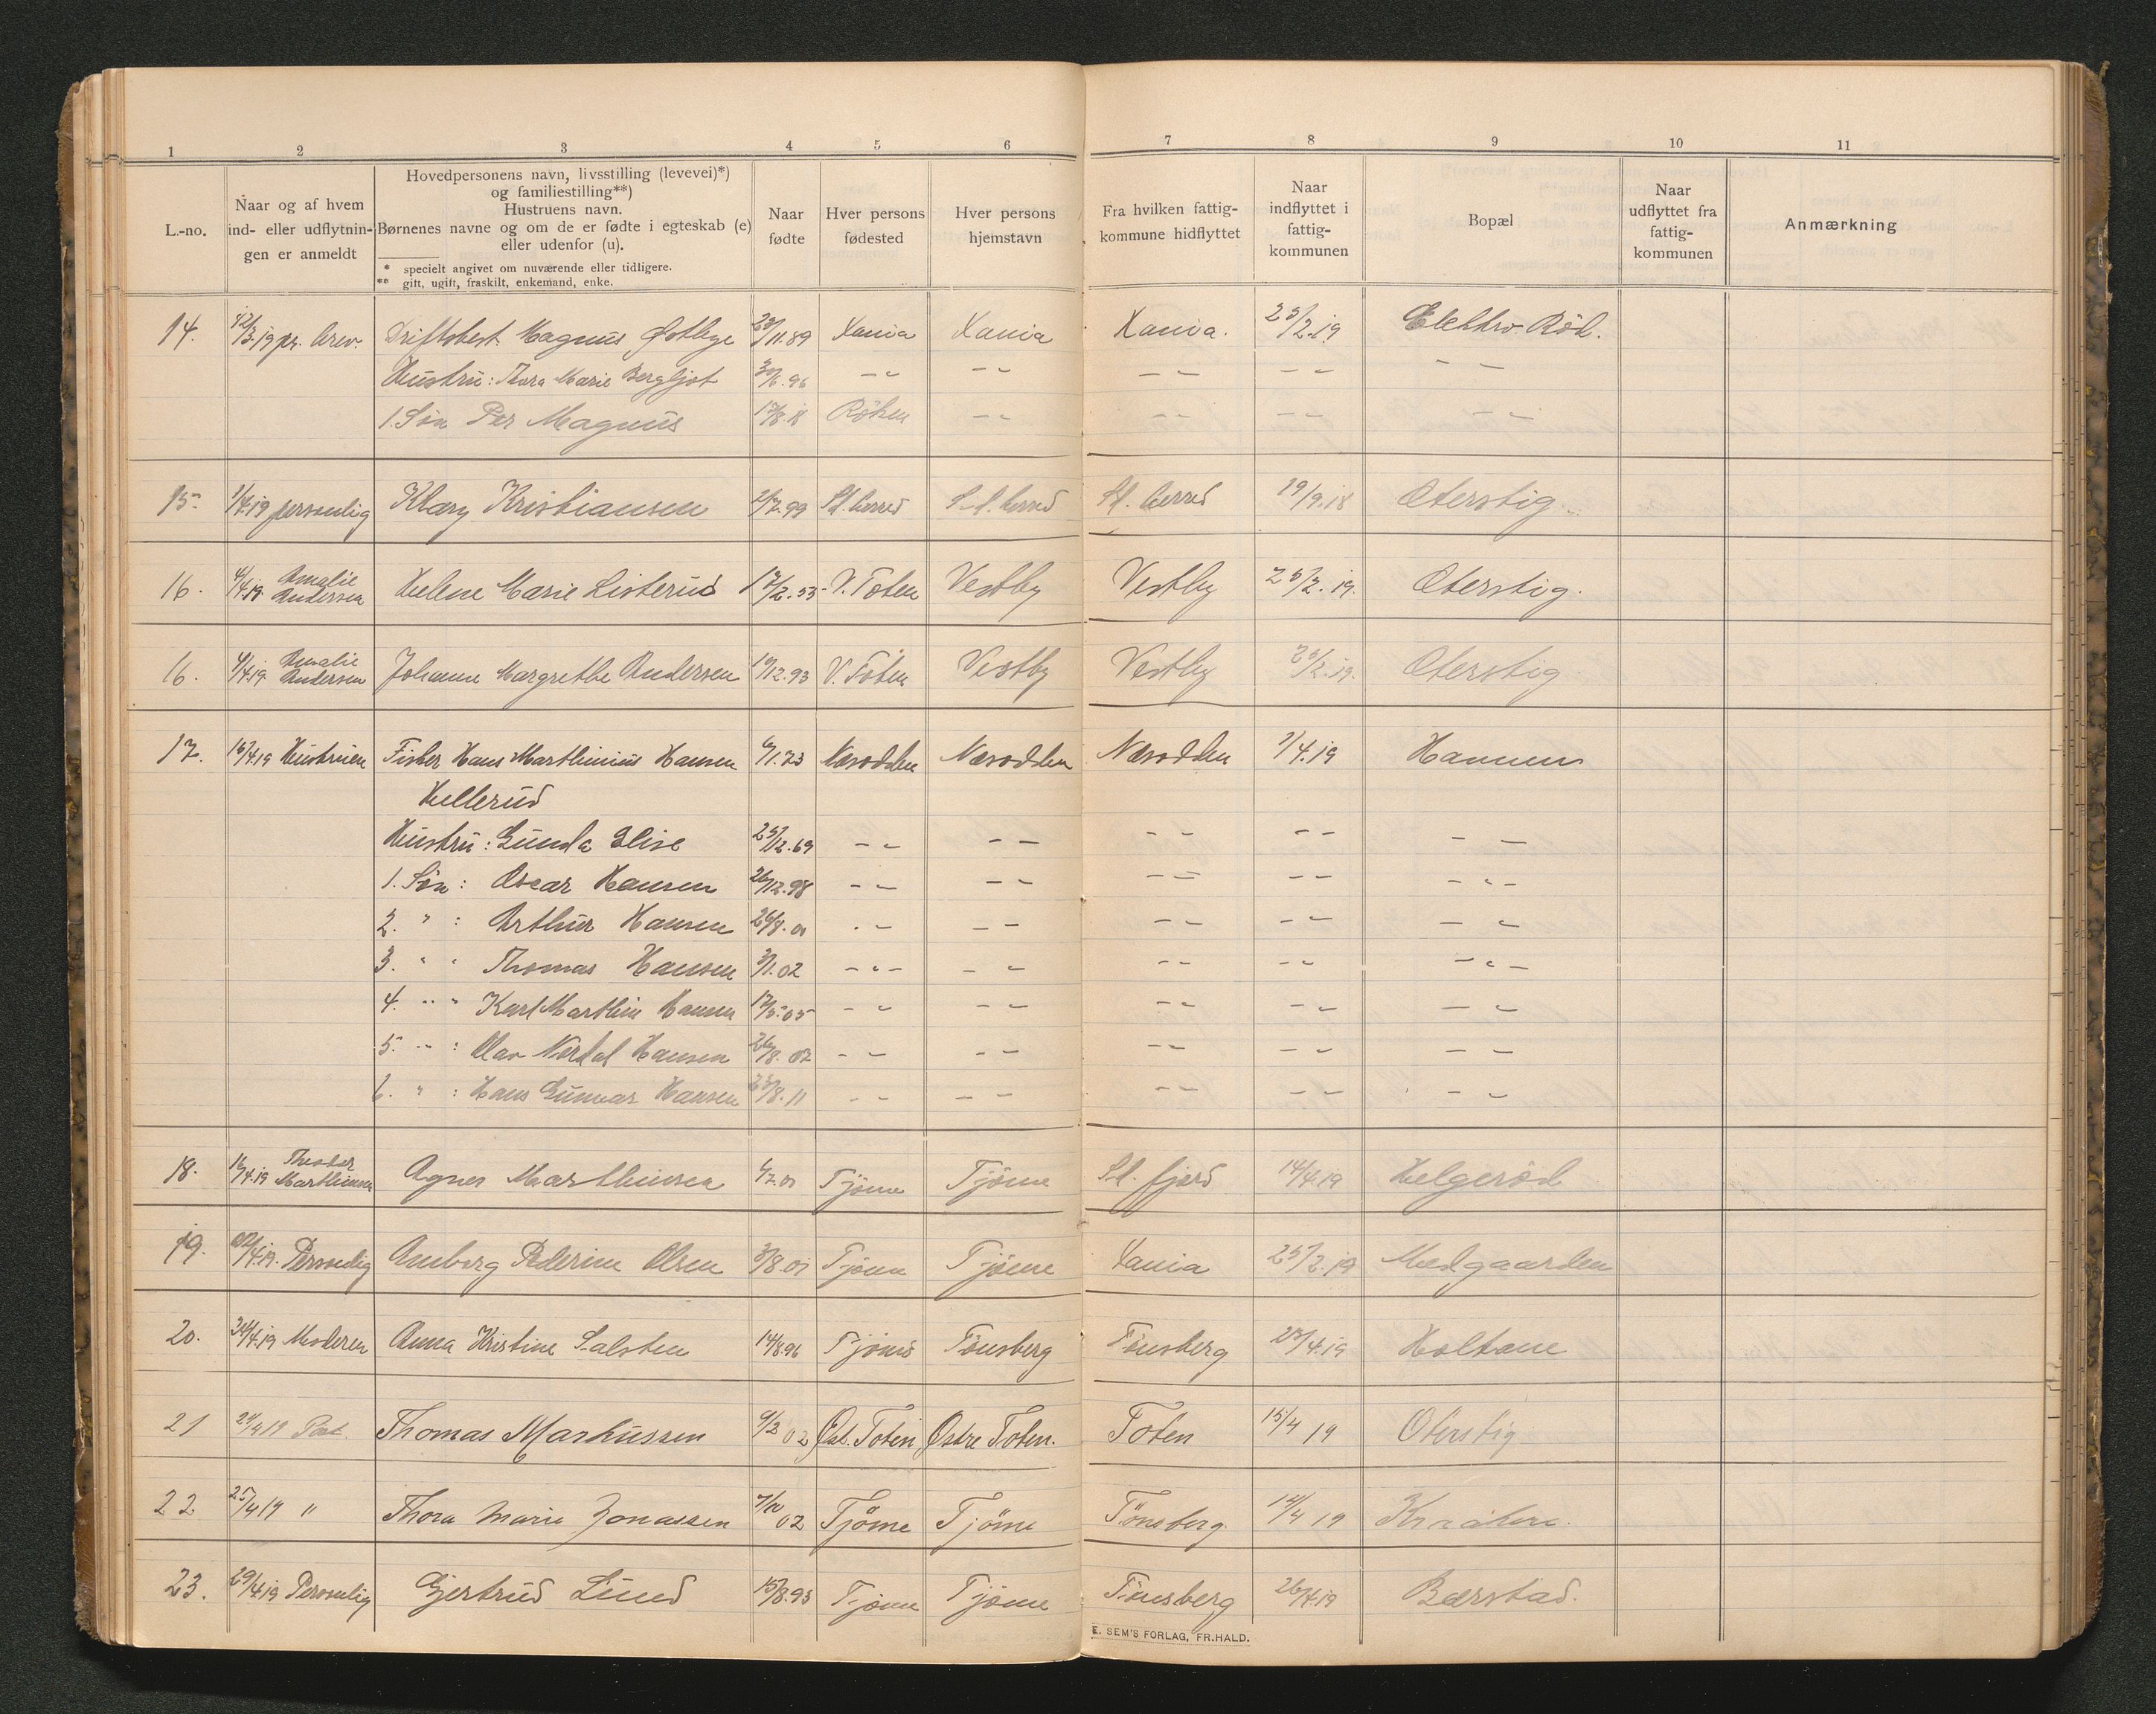 1 2 3 4 5 6 7 8 9 10 11
L.-no.
Naar og af hvem
ind- eller udflytnin-
gen er anmeldt
Hovedpersonens navn, livsstilling (levevei)*)
og familiestilling**)
Hustruens navn.
Børnenes navne og om de er fødte i egteskab (e)
eller udenfor (u).
* specielt angivet om nuværende eller tidligere.
** gift, ugift, fraskilt, enkemand, enke.
Naar
fødte
Hver persons
fødested
Hver persons
hjemstavn
Fra hvilken fattig-
kommune hidflyttet
Naar
indflyttet i
fattig-
kommunen
Bopæl
Naar
udflyttet fra
fattig-
kommunen
Anmærkning
14. 12/3.19 pr. Driftsbest. Magnus Østbye /11.89 Xania Xania Xania. 25/2.19 Elektro. Röd.
Hustru: Thora Marie Bergljot 30/6.96 - - - - - - - - - -
1. Søn Per Magnus 17/8.18 Röken - - - - - -
15. 1/4.19 personlig Klary Kristiansen 2/7.99 Sd. herred Sd. herred Sd. herred 19/9.18 Oterstig
16. 4/4.19 Amalie Andersen Helene Marie Listerud 17/2.53 V. Toten Vestby Vestby 25/2.19. Oterstig.
16. 4/4.19 Amalie Andersen Johanne Margrethe Andersen 19/12.93 V. Toten Vestby Vestby 25/2.19. Oterstig
17. 16/4.19 Hustruen Fisker Hans Marthinius Hansen 6/1.73 Næsodden Næsodden Næsodden 1/4.19 Hannen
Hellerud
Hustru: Gunda Elise 25/12.69 - - - - - - - - - -
1. Søn: Oscar Hansen 26/12.98 - - - - - - - - - " -
2. " : Arthur Hansen 26/8.01 - - - - - - - - - -
3. " " Thomas Hansen 3/1.02 - " - - - - - - - - " -
4. " " Karl Marthin Hansen 17/5.05 - - - - - - - - - -
5. " : Olav Nordal Hansen 26/8.07 - - - - - - - - - -
6. " : Hans Gunnar Hansen 23/8.11 - - - - - - - - - -
18. 16/4.19 Theodor Marthinsen Agnes Marthinsen 6/7.01 Tjöme Tjöme Sd. fjord 14/4.19 Helgeröd
19. /4.19. Personlig Amborg Pederine Olsen 3/8.01 Tjöme Tjöme Xania 25/2.19 Medgaarden
20. 24/4.19 Moderen Anna Kristine Salsten 14/8.96 Tjöme Tönsberg Tönsberg 23/4.19 Holtane
21 24/4 19 Post. Thomas Markussen 9/2 02 Øst. Toten Østre Toten. Toten 15/4 19 Oterstig
22. 25/4 19 " Thora Marie Jonassen 7/10 02 Tjöme Tjöme Tönsberg 14/4 19
23. 29/4.19 Personlig Gjertrud Lund 15/8.95 Tjöme Tjöme Tönsberg 26/4.19 Bærstad.
E. SEM'S FORLAG, FR.HALD.